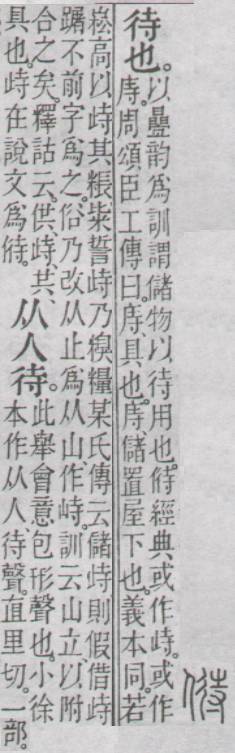 偫
待也。
以疊韵爲訓謂儲物以待用也。偫經典或作歭。或作
庤。周頌臣工傳曰。庤、具也。庤、儲置屋下也。義本同。若
崧高以歭其粻、粊誓歭乃糗糧某氏傳云儲歭則假借歭
踞不前字爲之。俗乃改从止爲从山作峙。訓云山立、以附
合之矣。釋詁云。供、歭、共、
具也。歭在說文爲偫。
从人待。
此舉會意包形聲也。小徐
本作从人、待聲。直里切。一部。